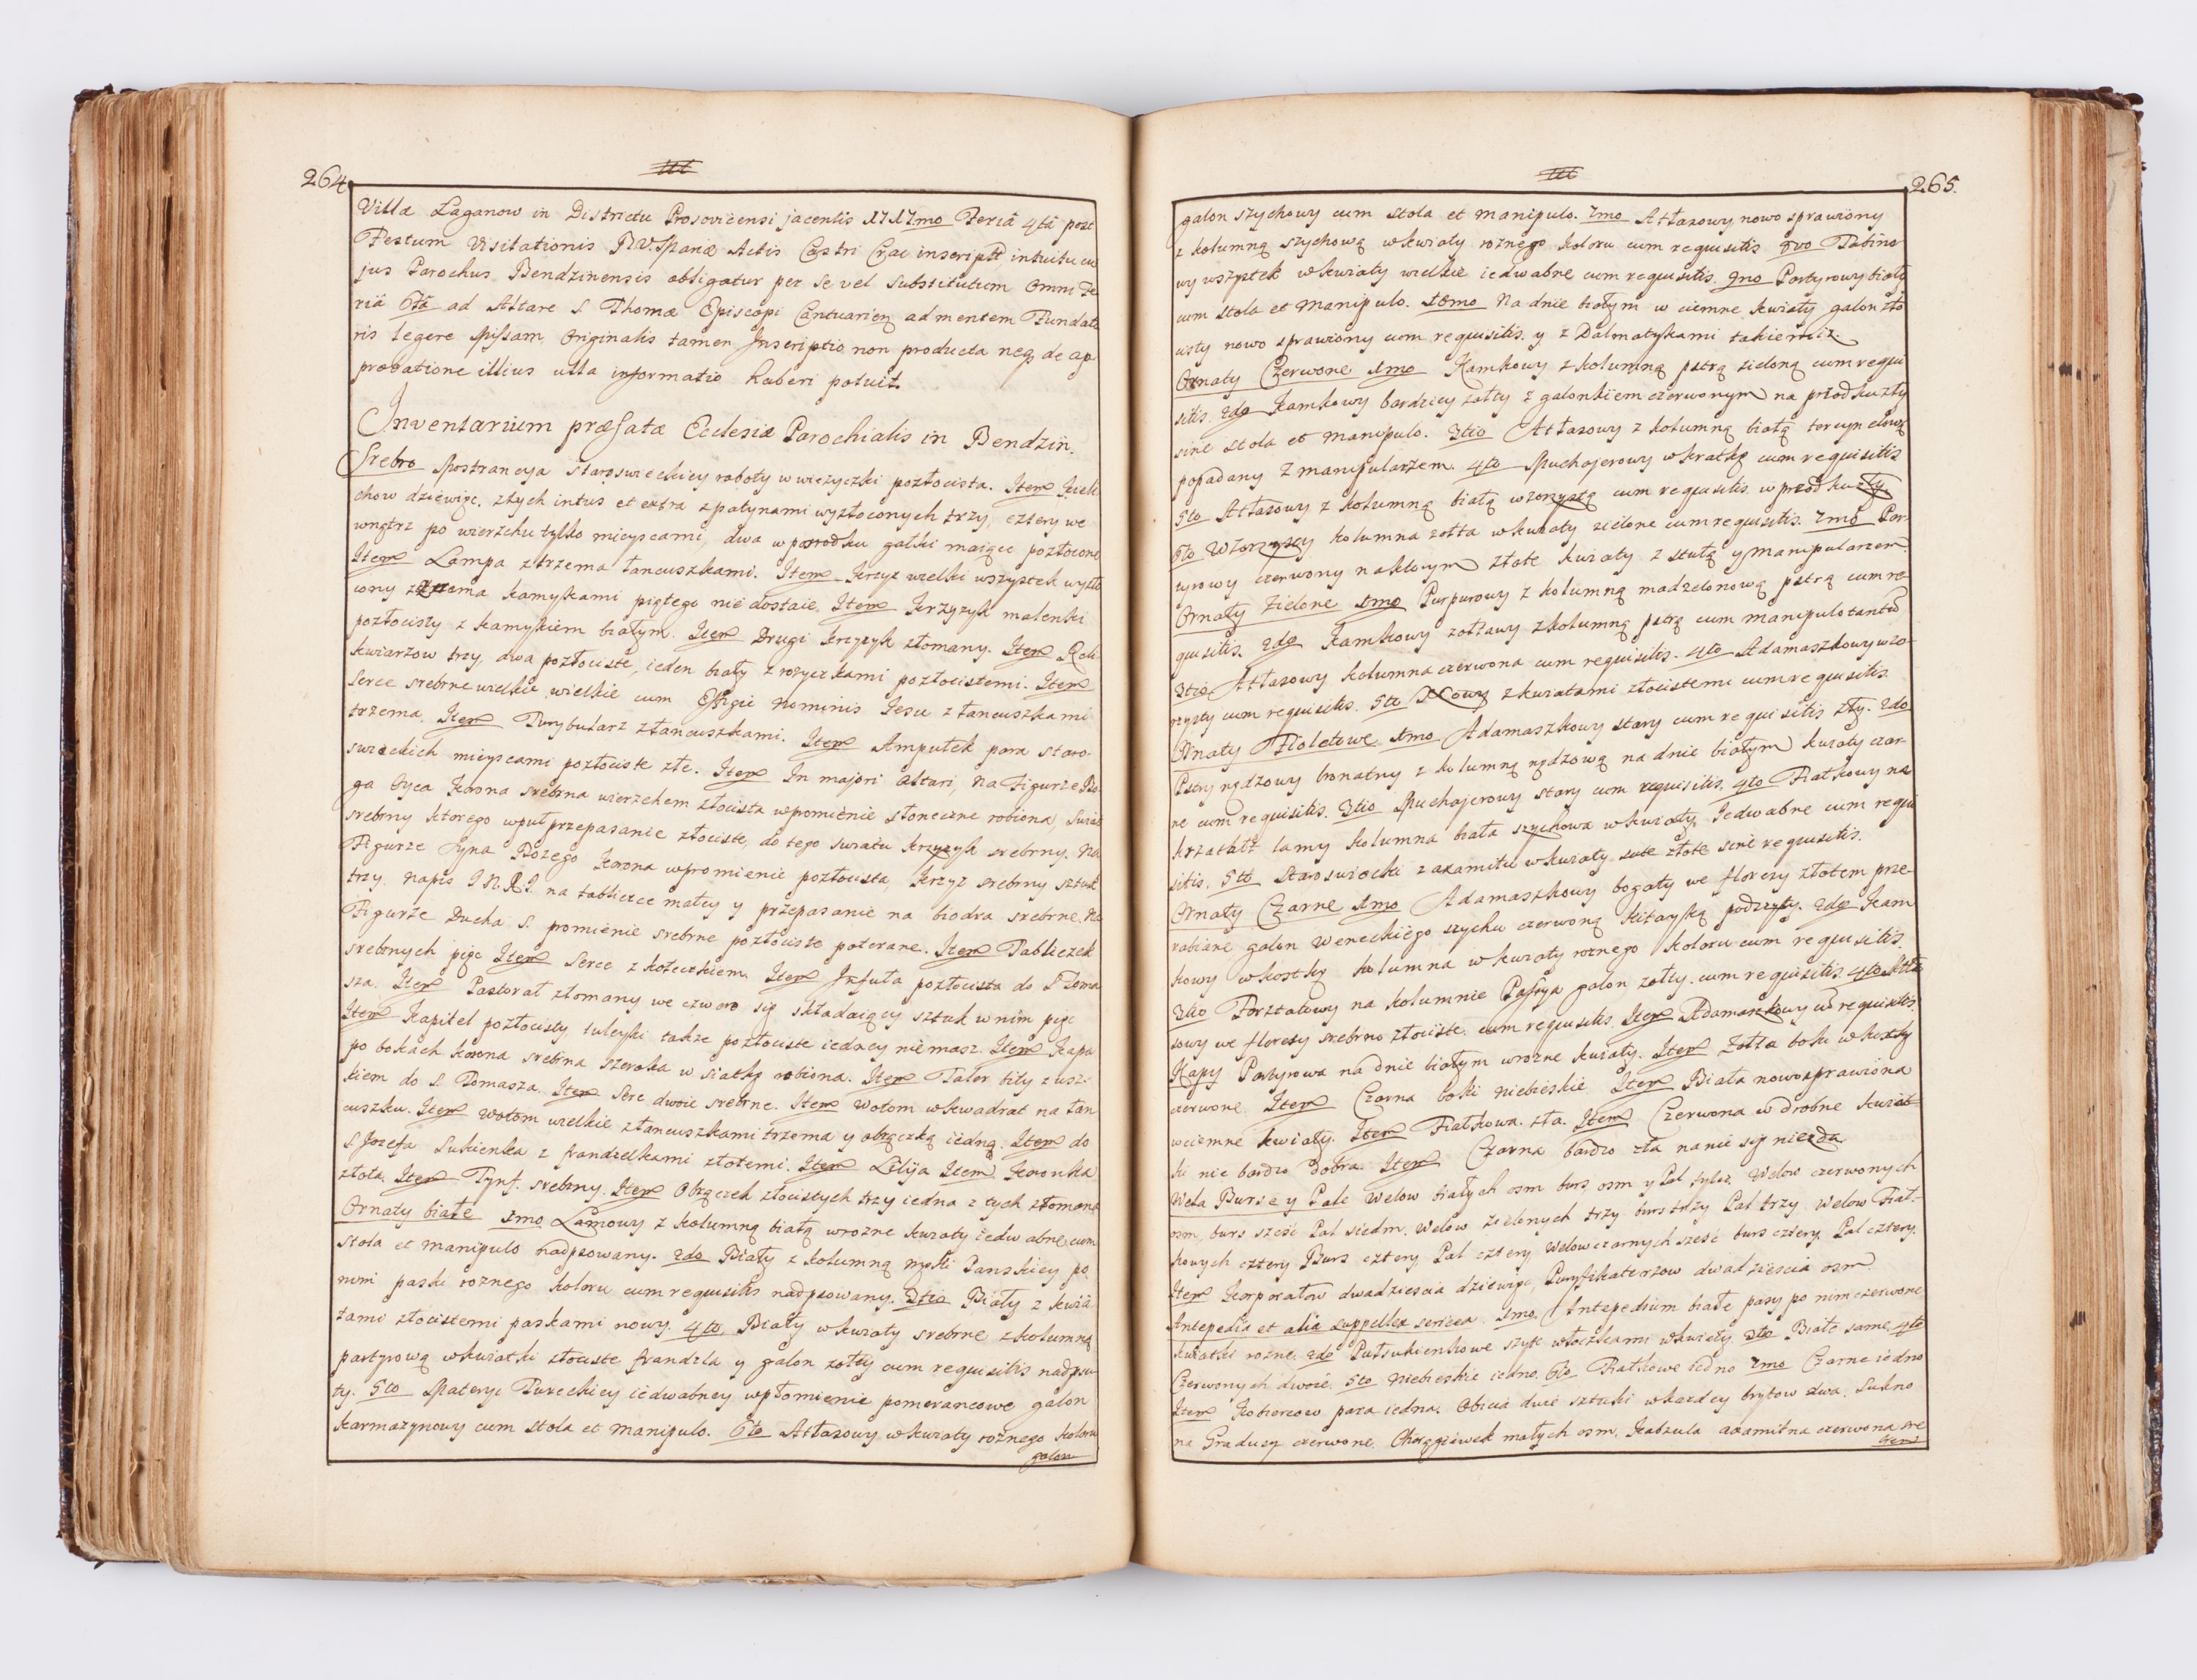 264
Villæ Laganow in Districtu Prosovicensi jacentis 1717mo Feriâ 4tâ post
Festum Visitationis B.V. Mariæ Actis Castri Crac inscript intuitu cu
jus Parochus Bendzinensis obligatur per se vel Substitutum omni Fe
riâ 6tâ ad Altare S Thomæ Episcopi Cantuarien ad mentem Fundato
ris legere Missam Originalis tamen Inscriptio non producta neq de ap
probatione illius ulla informatio haberi potuit.
Inventarium præfatæ Ecclesiæ Parochialis in Bendzin.
Srebro Mostrancyja staroswieckiey roboty w wieżyczki pozłocista. Item Kieli
chow dziewięc, złych intus et extra z patynami wyzłoconych trzy, cztery we
wnątrz po wierzchu tylko mieyscami, dwa w posrodku gałki maiące pozłocone
Item Lampa z trzema łancuszkami. Item Krzyż wielki wszystek wyzło
cony z kamykami piątego nie dostaie. Item Krzyzyk malenki
pozłocisty z kamykiem białym. Item Drugi krzyzyk złomany. Item Reli
kwiarzow trzy, dwa pozłociste, ieden biały z rozyczkami pozłocistemi. Item
Serce srebrne wielkie wielkie cum Effigie Nominis Jesu z łancuszkami
trzema. Item Turybularz z łancuszkami. Item Ampułek para staro-
swieckich mieyscami pozłociste złe. Item In majori Altari, Na Figurze Bo
ga Oyca Korona srebrna wierzchem złocista w promienie słoneczne robiona, Swiat
srebrny ktorego wpuł przepasanie złociste, do tego swiatu krzyzyk srebrny. Na
Figurze Syna Bożego Korona w promienie pozłocista, Krzyż srebrny sztuk
trzy. napis I N R I. na tabliczce małey y przepasanie na biodra srebrne. Na
Figurze Ducha S. promienie srebrne pozłociste poterane. Item Tabliczek
srebrnych pięc Item Serce z koteczkiem Item Infuła pozłocista do S Toma
sza. Item Pastorał złomany we czworo się składaiący sztuk w nim pięc
Item Kapitel pozłocisty, tuleyki takze pozłociste iedney niemasz. Item Kapa
po bokach korona srebrna szeroka w siatkę robiona. Item Taler bity z usz-
kiem do S. Tomasza. Item Serc dwoie srebrne. Item Wotom w kwadrat na łan
cuszku. Item Wotom wielkie z łancuszkami trzema y obrączką iedną. Item do
S Jozefa Sukienka z frandzelkami złotemi. Item Lilija Item Koronka
złota. Item Tynf. srebrny. Item Obrączek złocistych trzy iedna z tych złomana
Ornaty białe 1mo Lamowy z kolumną białą w rozne kwiaty iedwabne cum
stola et manipulo nadpsowany. 2do Biały z kolumną męki Panskiey po
nim paski roznego koloru cum requisitis nadpsowany. 3tio Biały z kwia
tami złocistemi paskami nowy. 4to, Biały w kwiaty srebrne z kolumną
partyrową w kwiatki złociste frandzla y galon zołty cum requisitis nadpsu
ty. 5to Materye Tureckiey iedwabney w płomienie pomerancowe galon
karmazynowy cum stola et manipulo. 6to Atłasowy w kwiaty roznego koloru
galon
265.
galon szychowy cum stola et manipulo. 7mo Atłasowy nowo sprawiony
z kolumną szychową w kwiaty roznego koloru cum requisitis 8vo Tabino
wy wszystek w kwiaty wielkie iedwabne cum requisitis. 9no Partyrowy biały
cum stola et manipulo. 10mo Na dnie białym w ciemne kwiaty galon zło
cisty nowo sprawiony cum requisitis. y z Dalmatykami takiemiz.
Ornaty Czerwone 1mo Kamkowy z kolumną pstrą zieloną cum requi
sitis. 2do Kamkowy bardziey zołty z galonkiem czerwonym na przodku zły
sine stola et manipulo. 3tio Atłasowy z kolumną białą tercynelową
popadany z manipularzem. 4to Muchajerowy w kratkę cum requisitis
5to Atłasowy z kolumną białą wzorzystą cum requisitis. w przodku zły.
6to Wzorzysty kolumna zołta w kwiaty zielone cum requisitis. 7mo Par-
tyrowy czerwony na ktorym złote kwiaty z stułą y manipularzem.
Ornaty Zielone 1mo Purpurowy z kolumną madzelonową pstrą cum re-
quisitis. 2do Kamkowy zołtawy z kolumną pstrą cum manipulo tantum
3tio Atłasowy kolumna czerwona cum requisitis. 4to Adamaszkowy wzo-
rzysty cum requisitis. 5to z kwiatami złocistemi cum requisitis.
Ornaty Fioletowe 1mo Adamaszkowy stary cum requisitis zły. 2do
Pstry rądzowy bronatny z kolumną rądzową na dnie białym kwiaty czar-
ne cum requisitis. 3tio Muchajerowy stary cum requisitis. 4to Fiałkowy na
kształt lamy kolumna biała szychowa w kwiaty Jedwabne cum requi
sitis. 5to Staroswiecki z axamitu w kwiaty sute złote sine requisitis.
Ornaty Czarne 1mo Adamaszkowy bogaty we floresy złotem prze-
rabiane galon weneckiego szychu czerwoną kitayką podszyty. 2do Kam
kowy w kostkę kolumna w kwiaty roznego koloru cum requisitis.
3tio Forsztatowy na kolumnie Passya galon zołty. cum requisitis. 4to Atła
sowy we floresy srebrno złociste. cum requisitis. Item Adamaszkowy cum requisitis.
Kapy Partyrowa na dnie białym w rozne kwiaty. Item Zołta boki w kwiaty
czerwone. Item Czarna boki niebieskie Item Biała nowo sprawiona
w ciemne kwiaty. Item Fiałkowa. zła. Item Czerwona w drobne kwiat-
ki nie bardzo dobra. Item Czarna bardzo zła na nic się niezda
Wela Burse y Pale Welow białych osm burs osm y Pal tyles, Welow czerwonych
osm, burs szesc Pal siedm. Welow zielonych trzy burs trzy Pal trzy. Welow Fiał-
kowych cztery Burs cztery Pal cztery, Welow czarnych szesc burs cztery, Pal cztery.
Item Korporałow dwadziescia dziewięc, Puryfikaterzow dwadziescia osm.
Antepedia et alia suppellex sericea. 1mo Antepedium białe pasy po nim czerwone
kwiatki rozne. 2do Pułsukienkowe szyte włoczkami w kwiaty. 3tio Białe same. 4to
Czerwonych dwoie. 5to Niebieskie iedno. 6to Fiałkowe iedno 7mo Czarne iedno
Item Kobiercow para iedna. Obicia dwie sztuki w kazdey brytow dwa. Sukno
na Gradusy czerwone. Chorągiewek małych osm. Kabzula axamitna czerwona sre